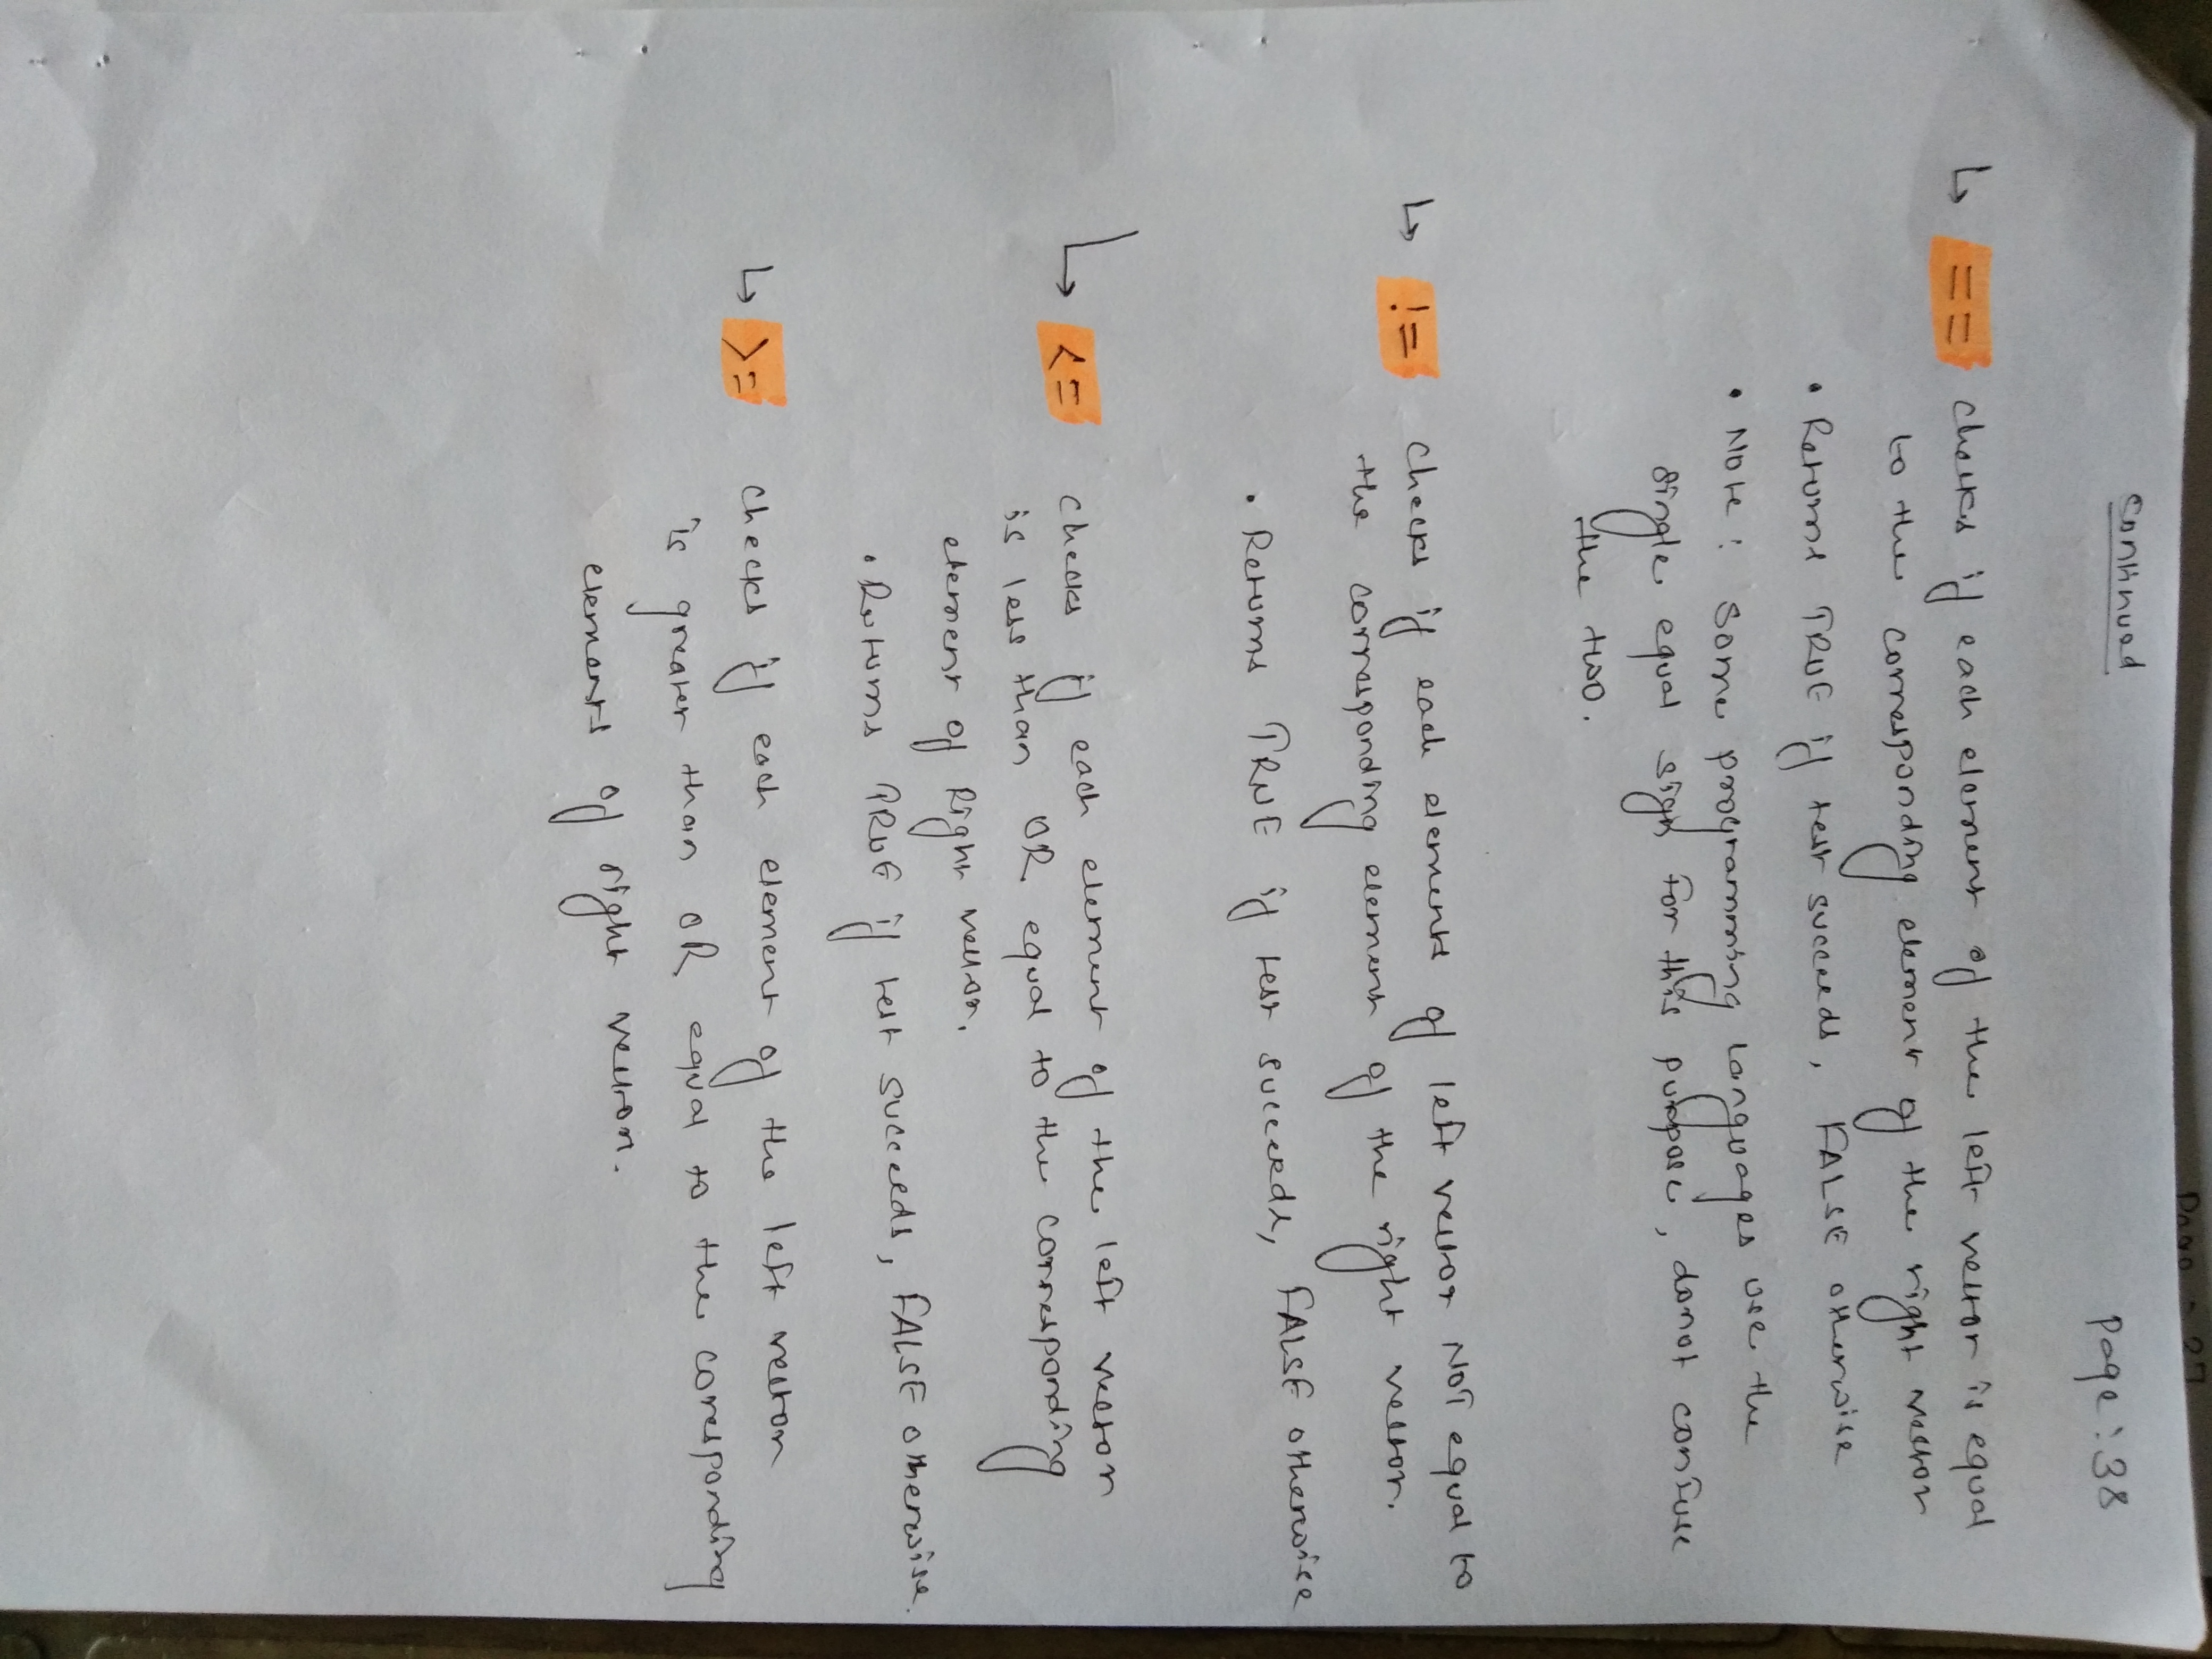 Page : 38
Continued
↳ == checks if each element of the left vector is equal
to the corresponding element of the right vector
• Returns TRUE if test succeeds, FALSE otherwise
• Note : Some programming languages use the
single equal sign for this purpose, donot confuse
the two.
↳ != checks if each element of left vector NOT equal to
the corresponding element of the right vector.
• Returns TRUE if test succeeds, FALSE otherwise
↳ <= checks if each element of the left vector
is less than OR equal to the corresponding
element of Right vector.
• Returns TRUE if test succeeds, FALSE otherwise.
↳ >= checks if each element of the left vector
is greater than OR equal to the corresponding
elements of right vector.